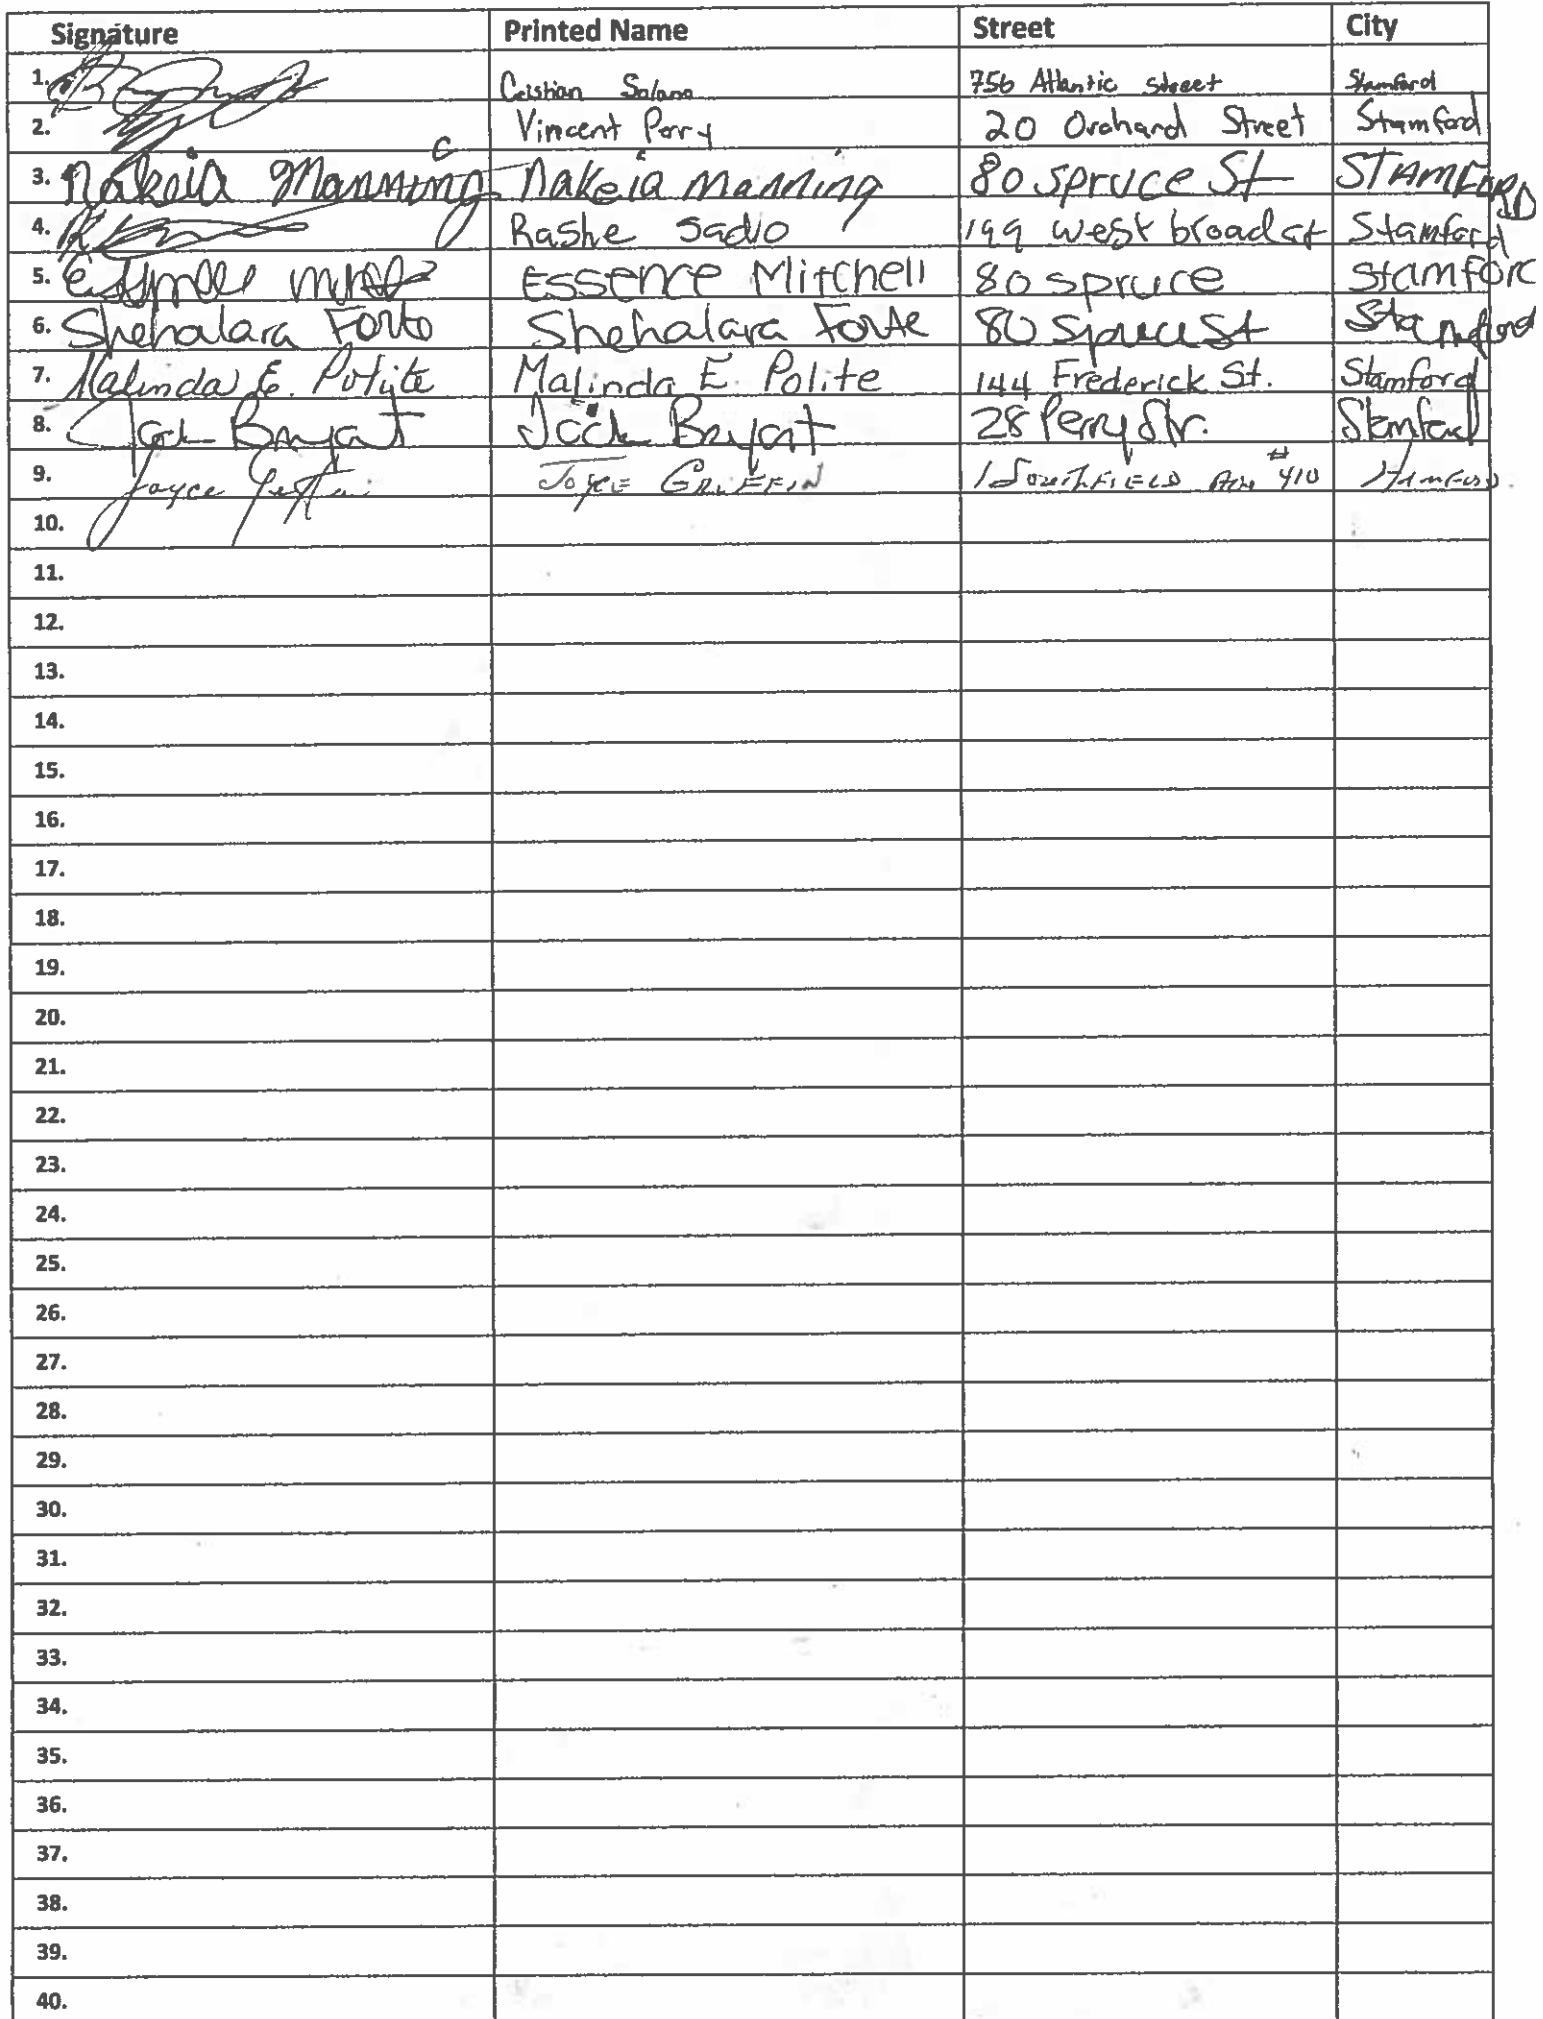 Signature Printed Name Street City
1. Cristian Solano 756 Atlantic Street Stamford
2. Vincent Perry 20 Orchard Street Stamford
3. Nakeia Manning Nakeia Manning 80 Spruce St STAMFORD
4. Rashe Sadio 199 west broad st Stamford
5. Essence Mitchell 80 spruce Stamford
6. Shehalara Forte Shehalara Forte 80 Spruce St Stamford
7. Malinda E. Polite Malinda E. Polite 144 Frederick St. Stamford
8. Jack Bryant Jack Bryant 28 Perry Str. Stamford
9. Joyce Griffin JOYCE GRIFFIN 1 SOUTHFIELD AVE #410 STAMFORD
10.
11.
12.
13.
14.
15.
16.
17.
18.
19.
20.
21.
22.
23.
24.
25.
26.
27.
28.
29.
30.
31.
32.
33.
34.
35.
36.
37.
38.
39.
40.